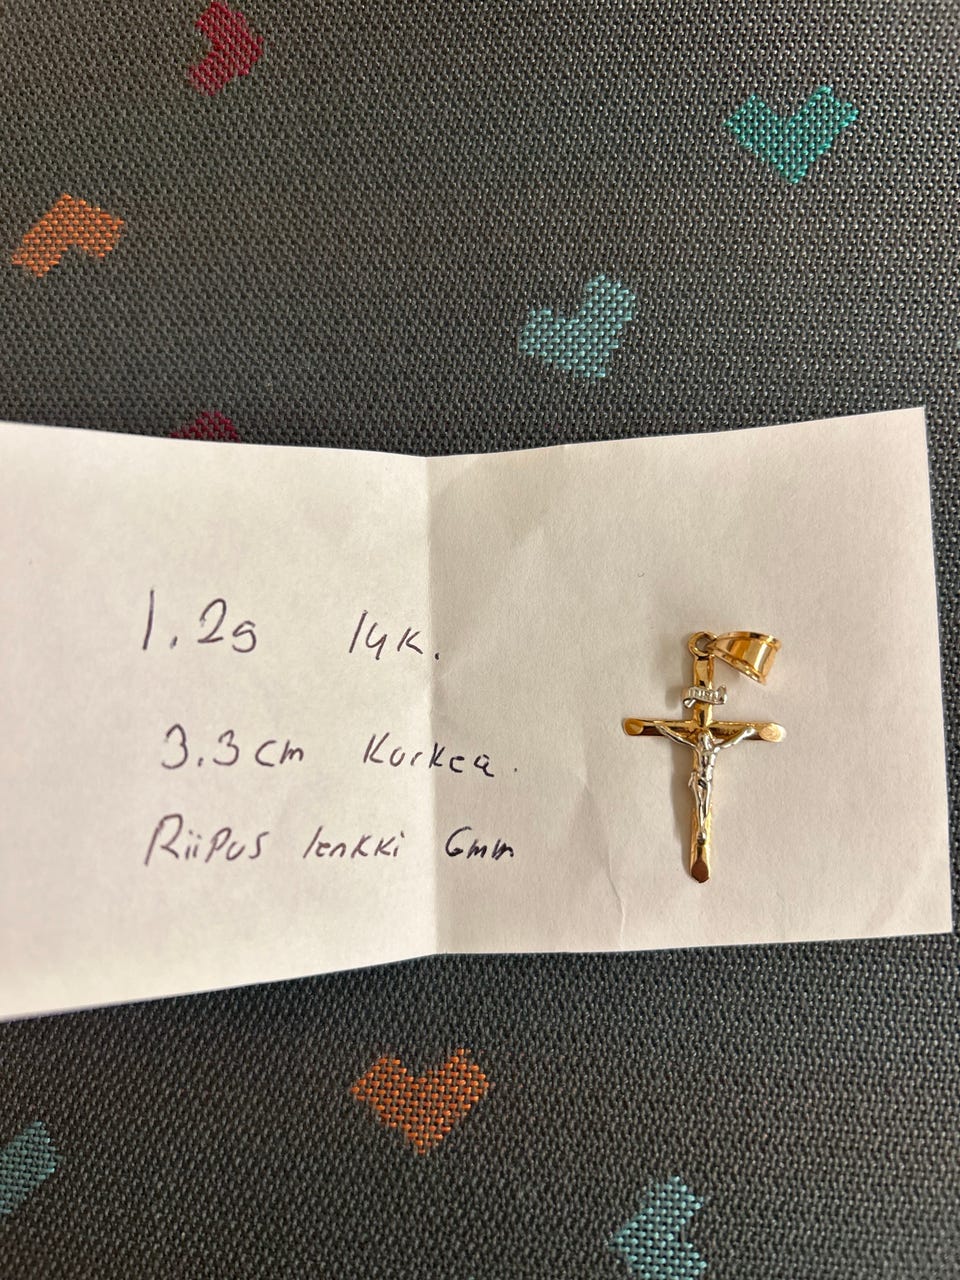 1.2g 14K.
3.3cm Korkea.
Riipus lenkki 6mm